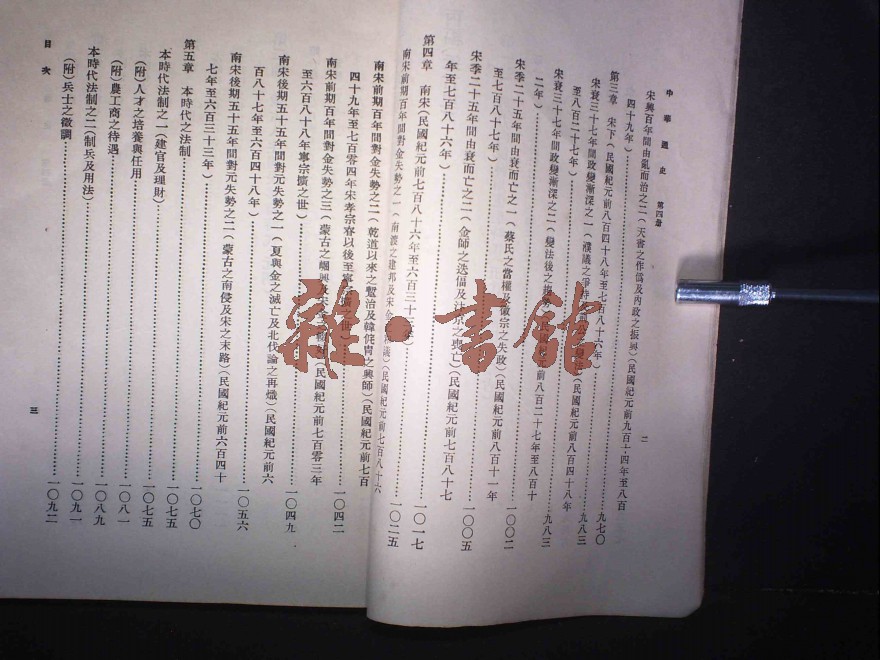 中華通史 第四册
二
宋興百年間由亂而治之二(天書之作僞及內政之振興)(民國紀元前九百十四年至八百
四十九年)……九七〇
第三章 宋下(民國紀元前八百四十八年至七百八十六年)……九八三
宋衰三十七年間政變漸深之一(濮議之爭
(民國紀元前八百四十八年
至八百二十七年)……九八三
宋衰三十七年間政變漸深之二(變法後之
民國紀元前八百二十七年至八百十
二年)
宋季二十五年間由衰而亡之一(蔡氏之當權及徽宗之失政)(民國紀元前八百十一年
至七百八十七年)……一〇〇二
宋季二十五年間由衰而亡之二(金師之迭侵及汴京之喪亡)(民國紀元前七百八十七
年至七百八十六年)……一〇〇五
第四章 南宋(民國紀元前七百八十六年至六百三十三年)……一〇一七
南宋前期百年間對金失勢之一(南渡之建邦及宋金
議)(民國紀元前七百八十六
……一〇二五
南宋前期百年間對金失勢之二(乾道以來之蹔治及韓侂冑之興師)(民國紀元前七百
四十九年至七百零四年宋孝宗眘以後至寧
之世)……一〇四二
南宋前期百年間對金失勢之三(蒙古之崛興及宋
(民國紀元前七百零三年
至六百八十八年寧宗擴之世)……一〇四九
南宋後期五十五年間對元失勢之一(夏與金之滅亡及北伐論之再熾)(民國紀元前六
百八十七年至六百四十八年)……一〇五六
南宋後期五十五年間對元失勢之二(蒙古之南侵及宋之末路)(民國紀元前六百四十
七年至六百三十三年)……一〇七〇
第五章 本時代之法制……一〇七五
本時代法制之一(建官及理財)……一〇七五
(附)人才之培養與任用……一〇八一
(附)農工商之待遇……一〇八九
本時代法制之二(制兵及用法)……一〇九一
(附)兵士之徵調……一〇九二
目次
三
雜·書館